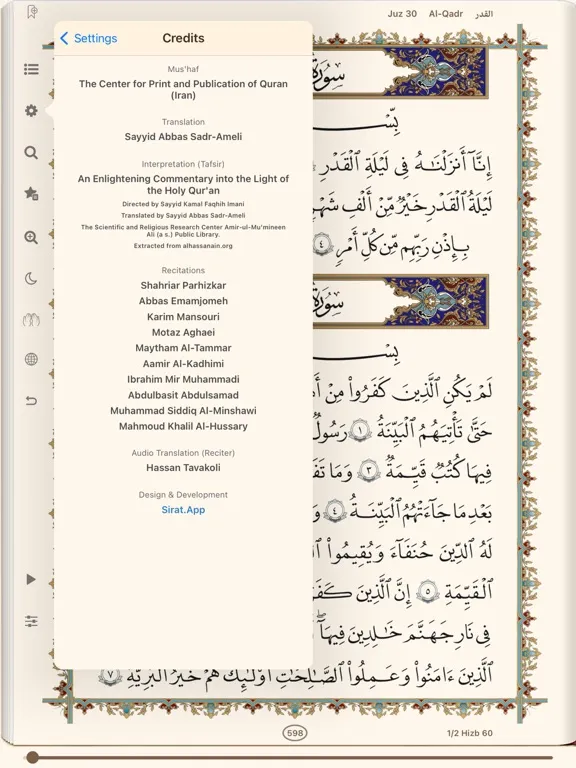 Juz 30 Al-Qadr القدر
Settings
Credits
Mus'haf
The Center for Print and Publication of Quran
(Iran)
Translation
Sayyid Abbas Sadr-Ameli
Interpretation (Tafsir)
An Enlightening Commentary into the Light of
the Holy Qur'an
Directed by Sayyid Kamal Faqhih Imani
Translated by Sayyid Abbas Sadr-Ameli
The Scientific and Religious Research Center Amir-ul-Mu'mineen
Ali (a s.) Public Library.
Extracted from alhassanain.org
Recitations
Shahriar Parhizkar
Abbas Emamjomeh
Karim Mansouri
Motaz Aghaei
Maytham Al-Tammar
Aamir Al-Kadhimi
Ibrahim Mir Muhammadi
Abdulbasit Abdulsamad
Muhammad Siddiq Al-Minshawi
Mahmoud Khalil Al-Hussary
Audio Translation (Reciter)
Hassan Tavakoli
Design & Development
Sirat.App
سورة
إِنَّآ أَنزَلْنَٰهُ فِى لَيْلَةِ ٱلْقَدْرِ
لَيْلَةُ ٱلْقَدْرِ خَيْرٌ مِّنْ أَلْفِ شَهْرٍ
بِإِذْنِ رَبِّهِم مِّن كُلِّ أَمْرٍ ٤
سورة
لَمْ يَكُنِ ٱلَّذِينَ كَفَرُوا۟ مِنْ
حَتَّىٰ تَأْتِيَهُمُ ٱلْبَيِّنَةُ ١ رَسُولٌ
فِيهَا كُتُبٌ قَيِّمَةٌ ٣ وَمَا
بَعْدِ مَا جَآءَتْهُمُ ٱلْبَيِّنَةُ ٤
لَهُ ٱلدِّينَ حُنَفَآءَ وَيُقِيمُوا۟
ٱلْقَيِّمَةِ ٥ إِنَّ ٱلَّذِينَ
فِى نَارِ جَهَنَّمَ خَٰلِدِينَ فِيهَآ
ٱلَّذِينَ ءَامَنُوا۟ وَعَمِلُوا۟ ٱلصَّٰلِحَٰتِ أُو۟لَٰٓئِكَ هُمْ خَيْرُ ٱلْبَرِيَّةِ ٧
598
1/2 Hizb 60